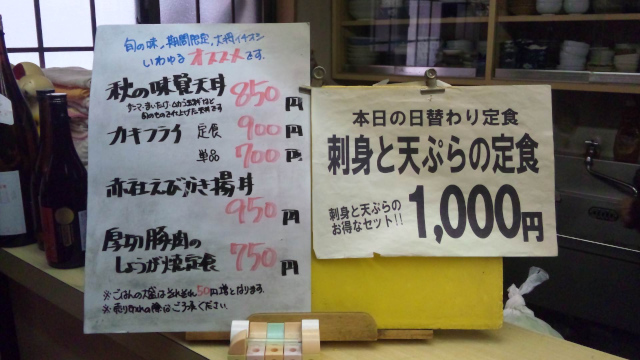 旬の味、期間限定、大将イチオシ
いわゆるオススメです。
秋の味覚天丼 850円
カキフライ 定食 900円
単品 700円
赤社えびかき揚丼
950円
厚切豚肉の
しょうが焼定食 750円
※ごはんの大盛はそれぞれ50円増となります。
※売り切れの際はご了承ください。
本日の日替わり定食
刺身と天ぷらの定食
刺身と天ぷらの
お得なセット!! 1,000円